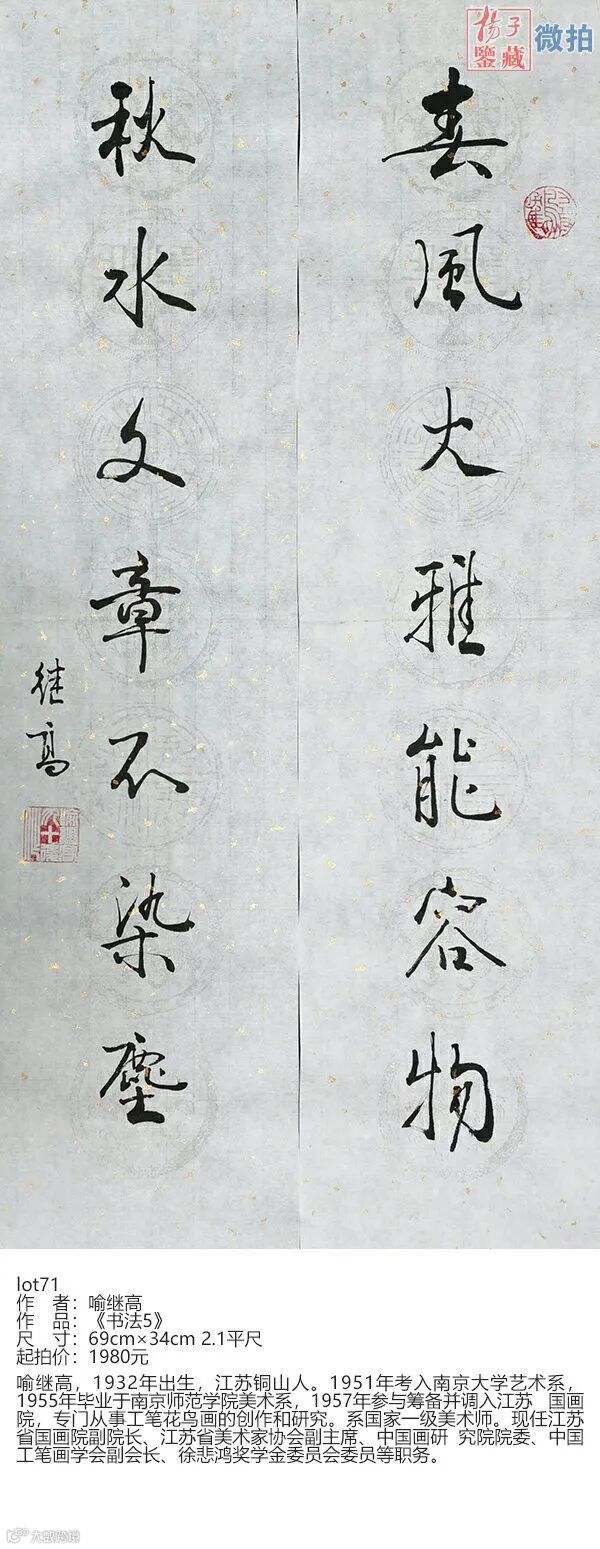 楊子
鑒藏
微拍
春風大雅能容物
秋水文章不染塵
继高
lot71
作 者：喻继高
作 品：《书法5》
尺 寸：69cm×34cm 2.1平尺
起拍价：1980元
喻继高，1932年出生，江苏铜山人。1951年考入南京大学艺术系，
1955年毕业于南京师范学院美术系，1957年参与筹备并调入江苏 国画
院，专门从事工笔花鸟画的创作和研究。系国家一级美术师。现任江苏
省国画院副院长、江苏省美术家协会副主席、中国画研 究院院委、中国
工笔画学会副会长、徐悲鸿奖学金委员会委员等职务。
大邸跨境